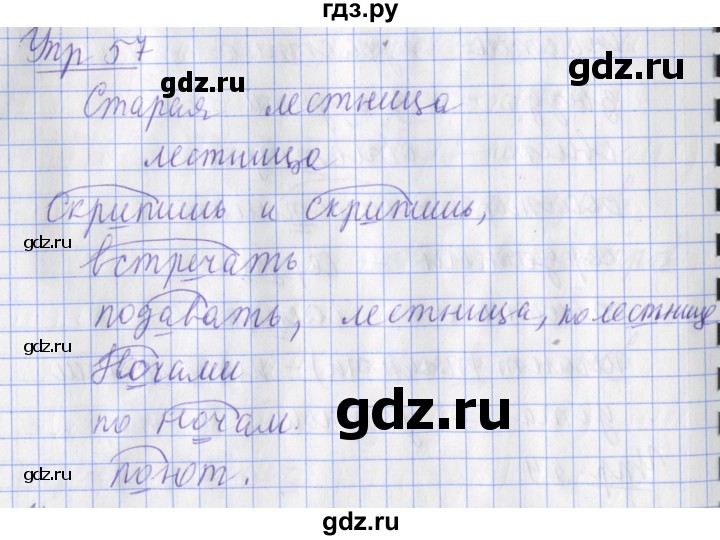 гдз.ру
Упр 57
gdz.ru
Старая лестница
лестница
Скрипишь и скрипишь,
gdz.ru
встречать
подавать, лестница, по лестнице
Ночами
gdz.ru
по ночам.
gdz.ru
поют.
gdz.ru